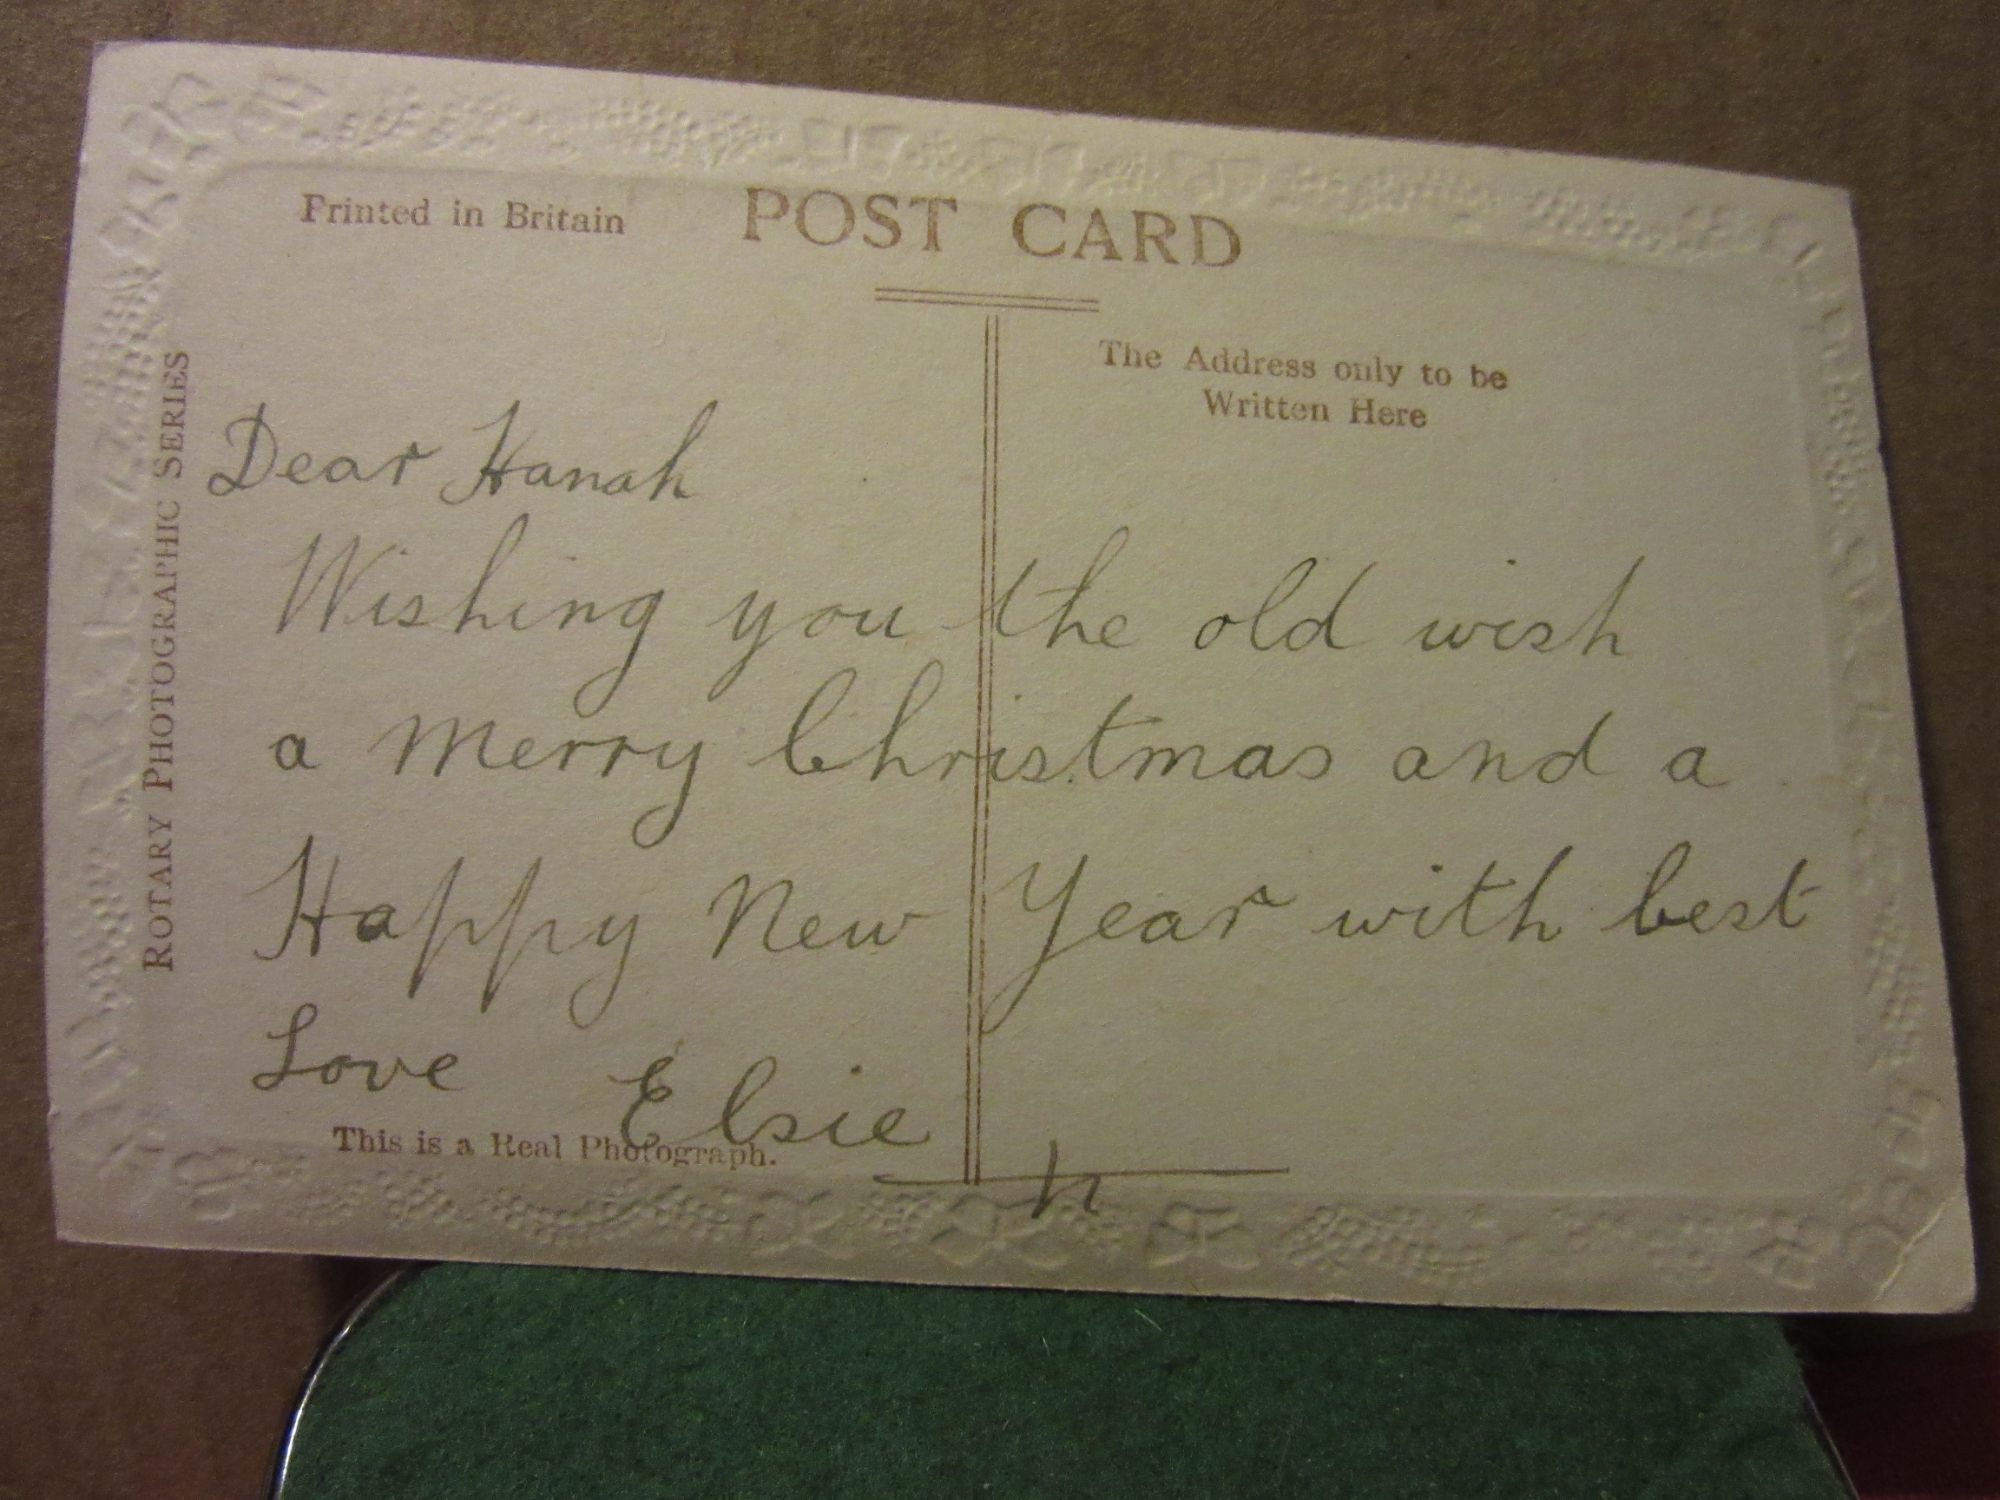 Printed in Britain
POST CARD
The Address only to be
Written Here
ROTARY PHOTOGRAPHIC SERIES
Dear Hanah
Wishing you the old wish
a merry Christmas and a
Happy New Year with best
Love Elsie
This is a Real Photograph.